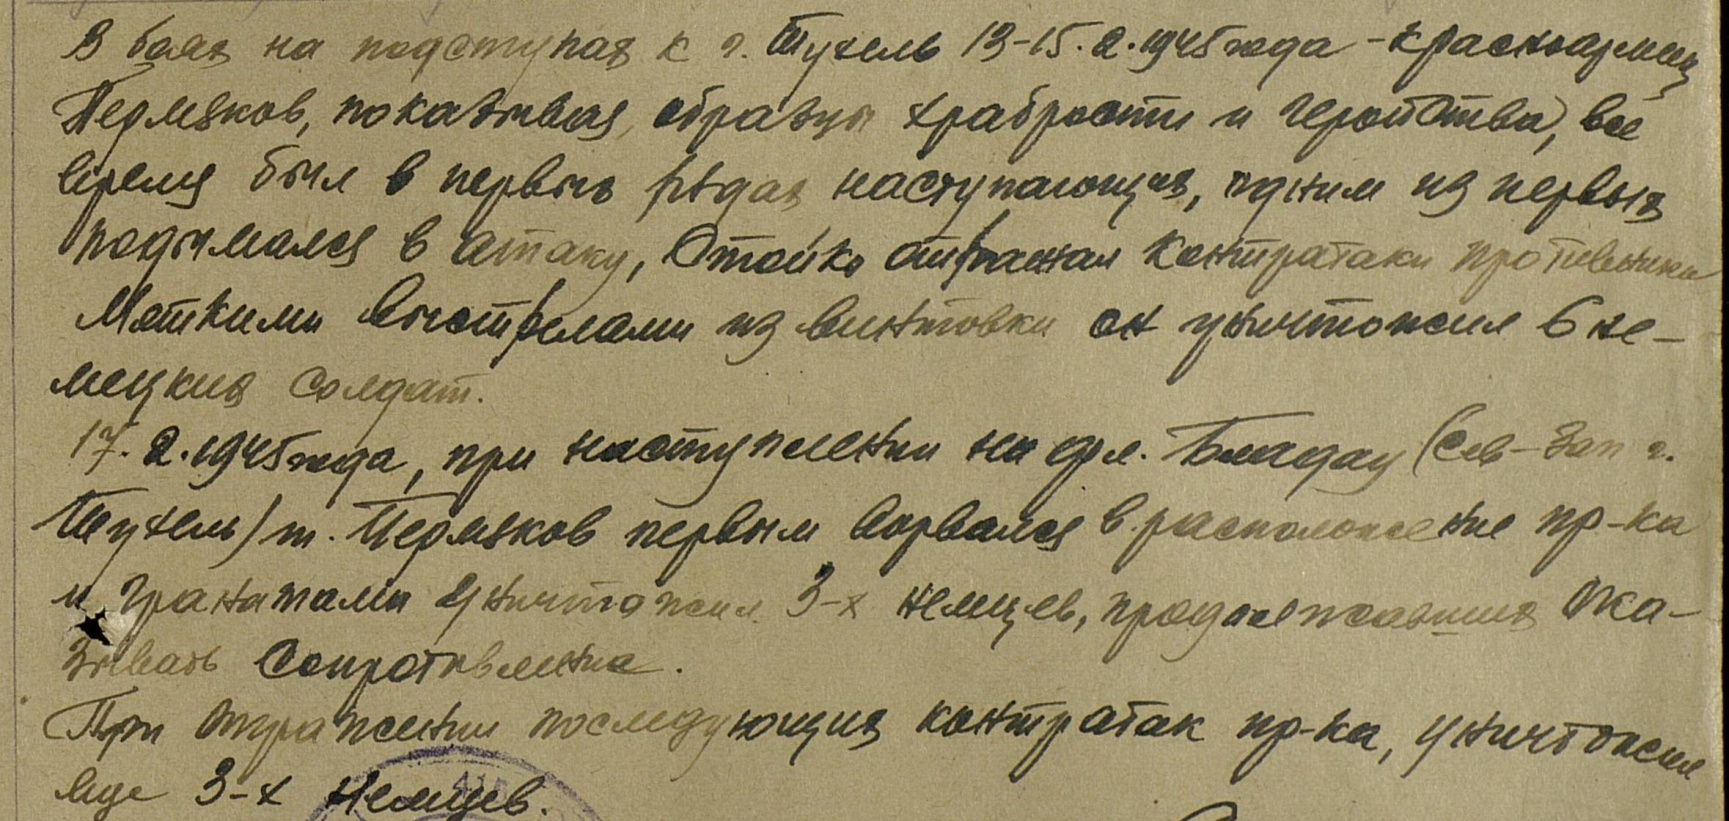 В боях на подступах к г. Тухель 13-15.2.1945 года - красноармеец
Пермяков, показывая образцы храбрости и геройства, всё
время был в первых рядах наступающих, одним из первых
подымался в атаку, стойко отражал контратаки противника
Меткими выстрелами из винтовки он уничтожил 6 не-
мецких солдат.
17.2.1945 года, при наступлении на фл. Бладау (Сев-Зап г.
Тухель) т. Пермяков первым ворвался в расположение пр-ка
и гранатами уничтожил 3-х немцев, продолжавших ока-
зывать сопротивление.
При отражении последующих контратак пр-ка, уничтожил
еще 3-х немцев.